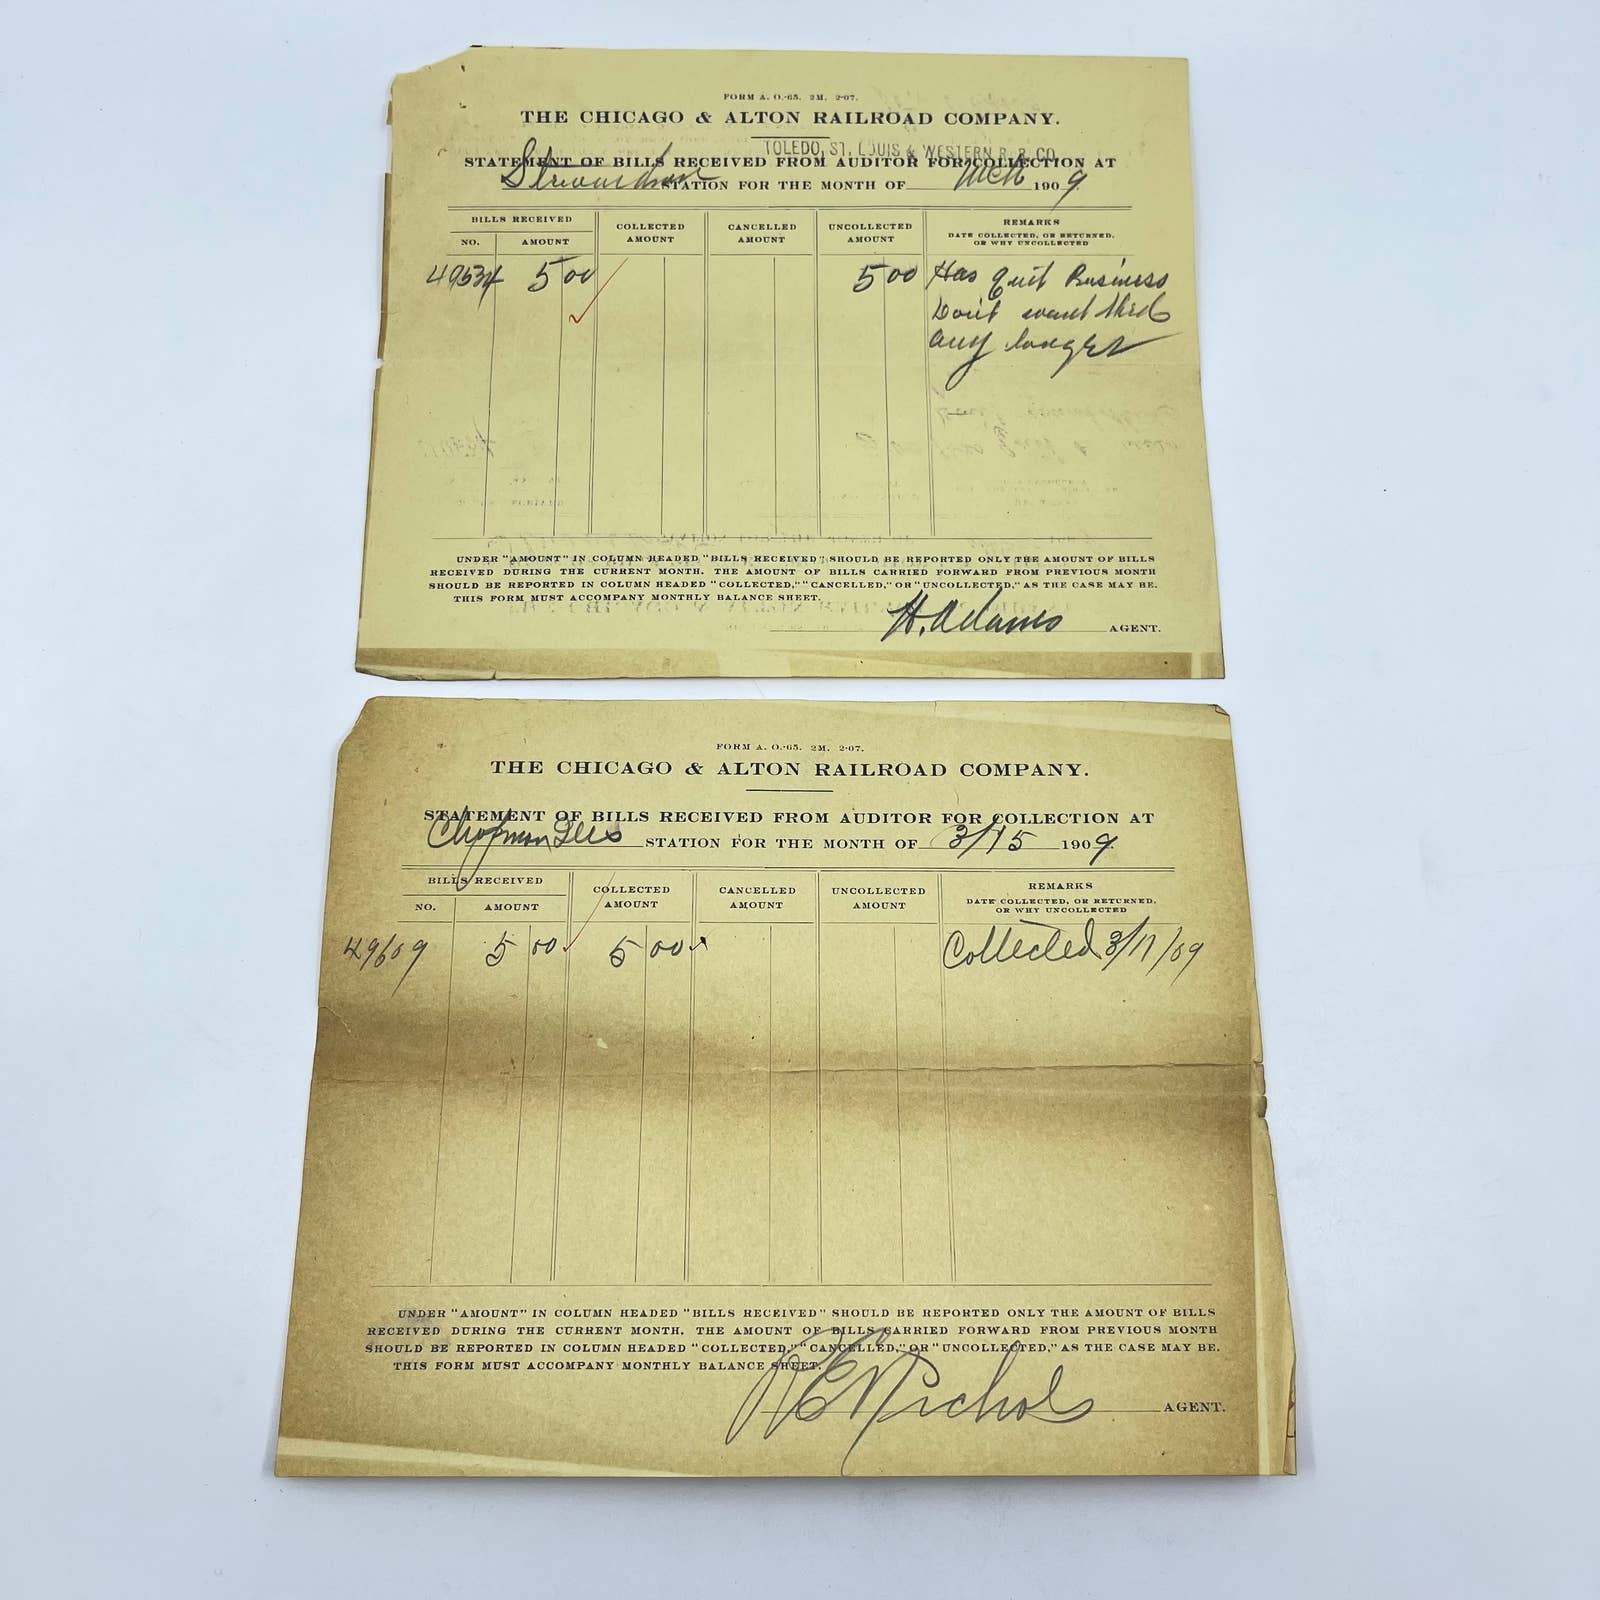 FORM A. O.-65. 2M. 2-07.
THE CHICAGO & ALTON RAILROAD COMPANY.
TOLEDO, ST. LOUIS & WESTERN R. R. CO.
STATEMENT OF BILLS RECEIVED FROM AUDITOR FOR COLLECTION AT
Stewardson STATION FOR THE MONTH OF Mch 1909
BILLS RECEIVED COLLECTED AMOUNT CANCELLED AMOUNT UNCOLLECTED AMOUNT REMARKS
NO. AMOUNT DATE COLLECTED, OR RETURNED, OR WHY UNCOLLECTED
49534 5 00 5 00 Has Quit Business
Don't want
any longer
UNDER "AMOUNT" IN COLUMN HEADED "BILLS RECEIVED" SHOULD BE REPORTED ONLY THE AMOUNT OF BILLS
RECEIVED DURING THE CURRENT MONTH. THE AMOUNT OF BILLS CARRIED FORWARD FROM PREVIOUS MONTH
SHOULD BE REPORTED IN COLUMN HEADED "COLLECTED," "CANCELLED," OR "UNCOLLECTED," AS THE CASE MAY BE.
THIS FORM MUST ACCOMPANY MONTHLY BALANCE SHEET.
H. Adams AGENT.
FORM A. O.-65. 2M. 2-07.
THE CHICAGO & ALTON RAILROAD COMPANY.
STATEMENT OF BILLS RECEIVED FROM AUDITOR FOR COLLECTION AT
Chapman Ills STATION FOR THE MONTH OF 3/15 1909
BILLS RECEIVED COLLECTED AMOUNT CANCELLED AMOUNT UNCOLLECTED AMOUNT REMARKS
NO. AMOUNT DATE COLLECTED, OR RETURNED, OR WHY UNCOLLECTED
49609 5 00 5 00 Collected 3/17/09
UNDER "AMOUNT" IN COLUMN HEADED "BILLS RECEIVED" SHOULD BE REPORTED ONLY THE AMOUNT OF BILLS
RECEIVED DURING THE CURRENT MONTH. THE AMOUNT OF BILLS CARRIED FORWARD FROM PREVIOUS MONTH
SHOULD BE REPORTED IN COLUMN HEADED "COLLECTED," "CANCELLED," OR "UNCOLLECTED," AS THE CASE MAY BE.
THIS FORM MUST ACCOMPANY MONTHLY BALANCE SHEET.
Nichols AGENT.